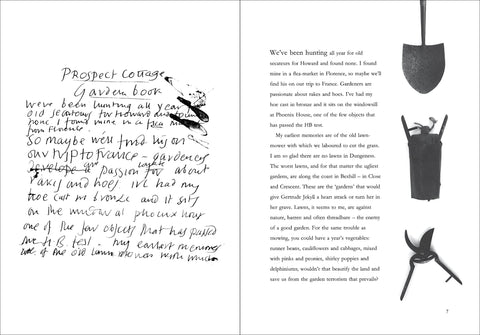 PROSPECT COTTAGE
Garden book
we've been hunting all year
old secateurs for Howard and found
none. I found mine in a flea
from Florence.
So maybe we'll find his on
our trip to France - gardeners
are passion about
rakes and hoes I've had my
hoe cast in bronze and it sits
on the at phoenix house
one of the few objects that has passed
the H.B. test. My earliest memories
of the old lawn
We've been hunting all year for old
secateurs for Howard and found none. I found
mine in a flea-market in Florence, so maybe we'll
find his on our trip to France. Gardeners are
passionate about rakes and hoes. I've had my
hoe cast in bronze and it sits on the windowsill
at Phoenix House, one of the few objects that
has passed the HB test.
My earliest memories are of the old lawn-
mower with which we laboured to cut the grass.
I am so glad there are no lawns in Dungeness.
The worst lawns, and for that matter the ugliest
gardens, are along the coast in Bexhill – in Close
and Crescent. These are the ‘gardens’ that would
give Gertrude Jekyll a heart attack or turn her in
her grave. Lawns, it seems to me, are against
nature, barren and often threadbare – the enemy
of a good garden. For the same trouble as
mowing, you could have a year's vegetables:
runner beans, cauliflowers and cabbages, mixed
with pinks and peonies, shirley poppies and
delphiniums; wouldn't that beautify the land and
save us from the garden terrorism that prevails?
7